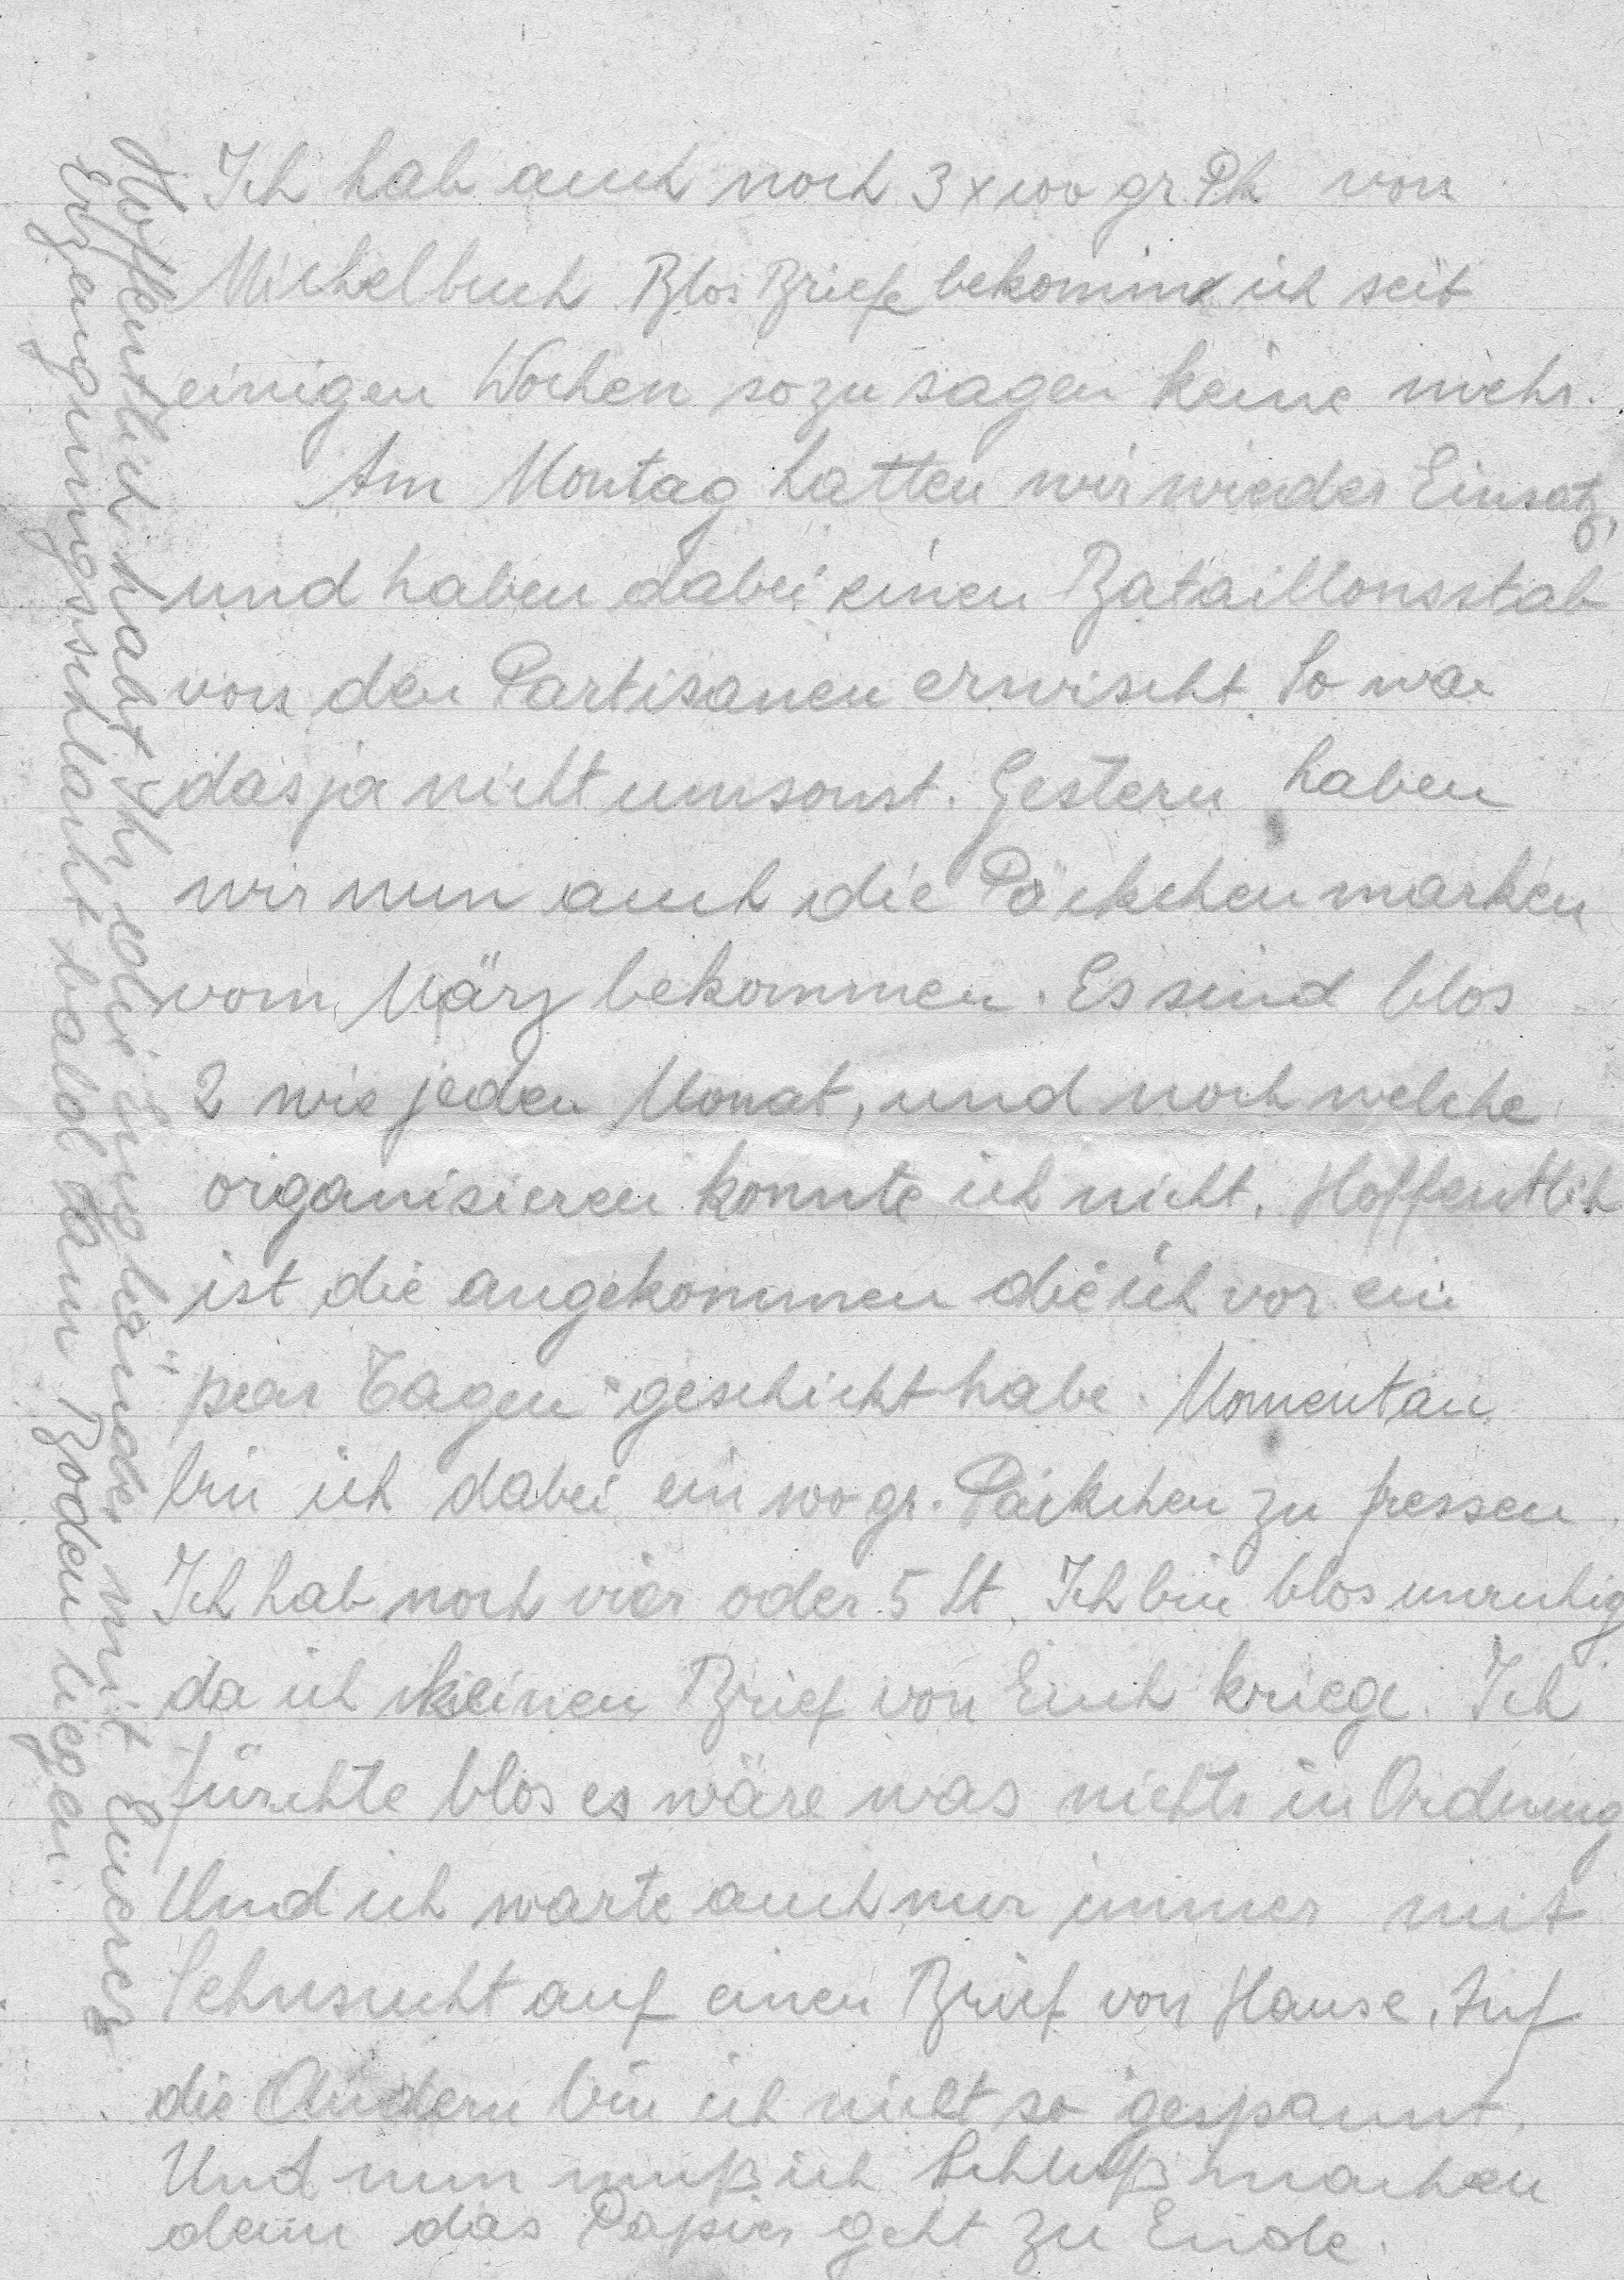 Ich hab auch noch 3 x 100 gr. Pk von
Michelbuch Blos Briefe bekomm ich seit
einigen Wochen sozusagen keine mehr.
Am Montag hatten wir wieder Einsatz,
und haben dabei einen Bataillonsstab
von den Partisanen erwischt. So war
das ja nicht umsonst. Gestern haben
wir nun auch die Päckchenmarken
vom März bekommen. Es sind blos
2 wie jeden Monat, und noch welche
organisieren konnte ich nicht. Hoffentlich
ist die angekommen die ich vor ein
paar Tagen geschickt habe. Momentan
bin ich dabei ein 100 gr. Päckchen zu fressen.
Ich hab noch vier oder 5 St. Ich bin blos unruhig
da ich keinen Brief von Euch kriege. Ich
fürchte blos es wäre was nichts in Ordnung
Und ich warte auch nur immer mit
Sehnsucht auf einen Brief von Hause. Auf
die Andern bin ich nicht so gespannt.
Und nun muß ich Schluß machen
denn das Papier geht zu Ende.
Hoffentlich habt Ihr die mit Eurer
Erzeugungsschlacht bald am Boden liegen.